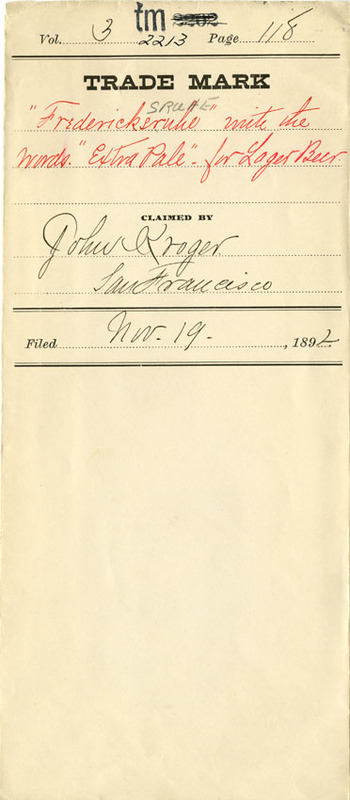 tm 2202
Vol. 3 2213 Page 118
TRADE MARK
SRUHE
"Fredericksruhe" with the
words "Extra Pale" - for Lager Beer
CLAIMED BY
John Kroger
San Francisco
Filed Nov. 19. , 1892